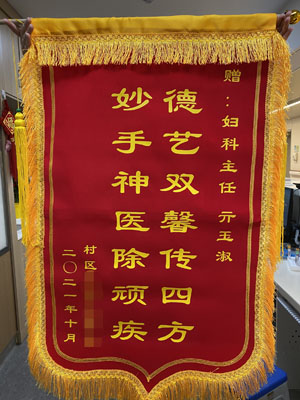 赠：妇科主任 亓玉淑
德艺双馨传四方
妙手神医除顽疾
村区
二〇二一年十月